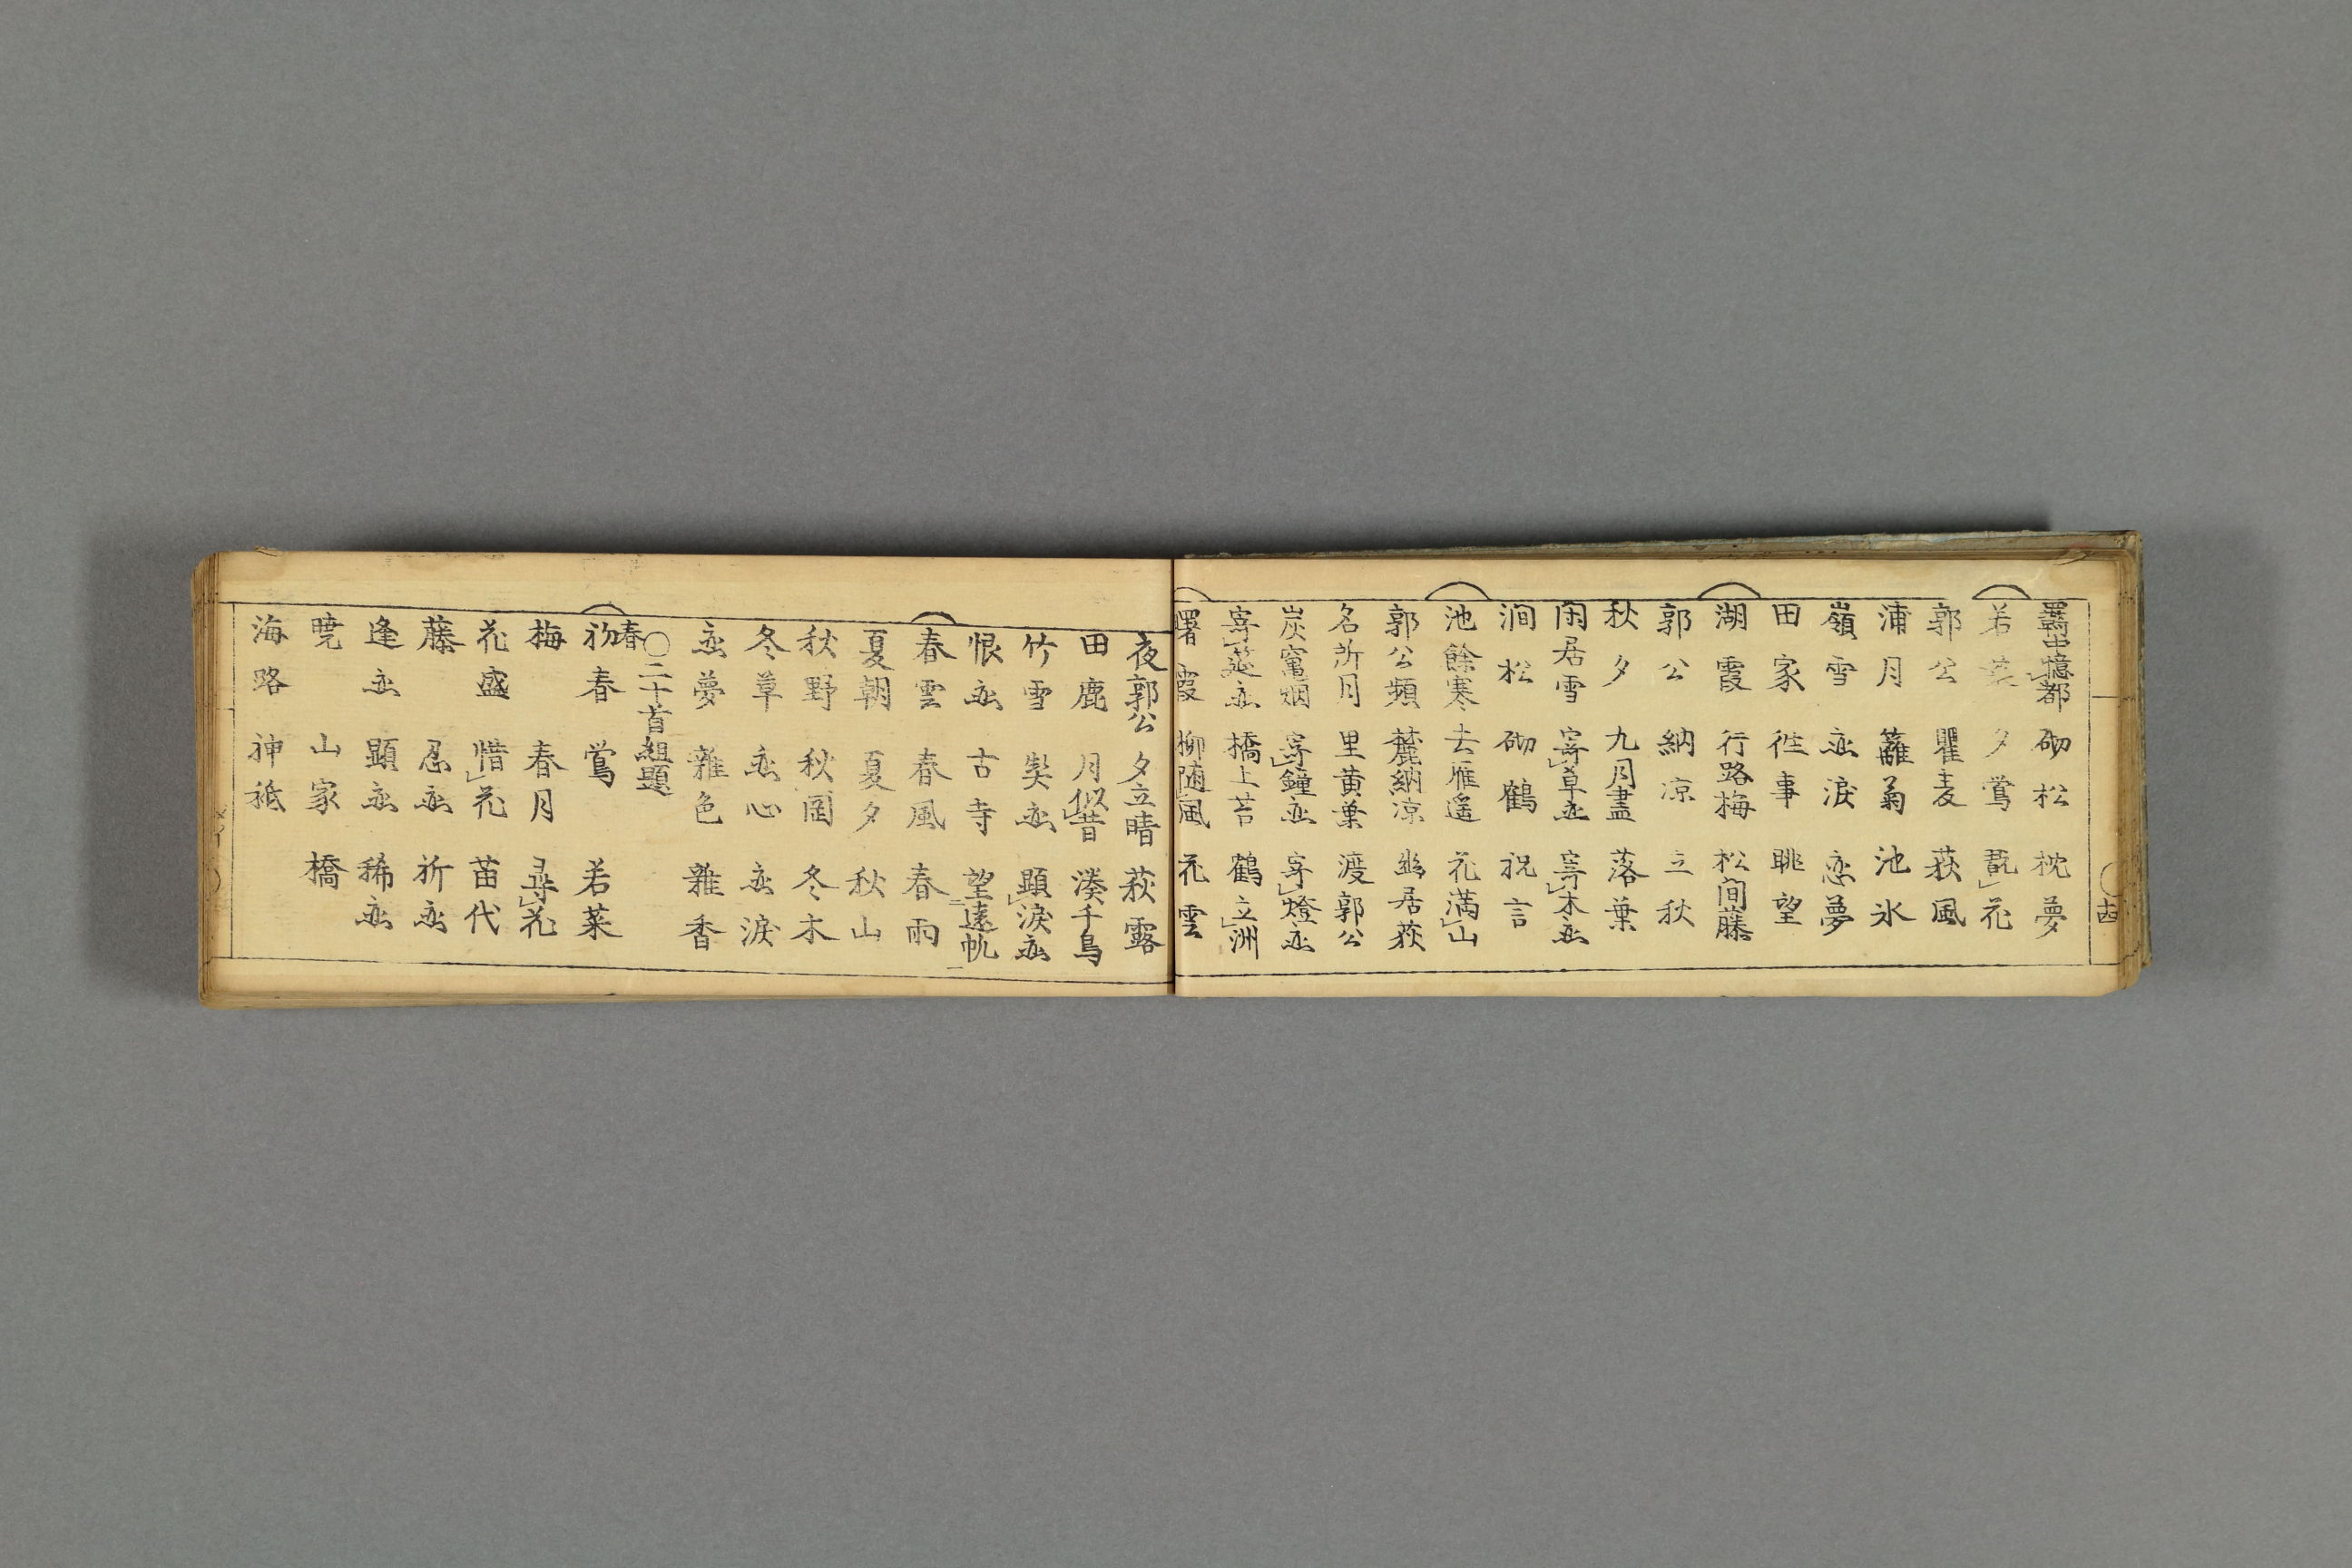 羇中憶都 砌松 枕夢
若菜 夕鶯 翫花
郭公 瞿麦 荻風
浦月 籬菊 池氷
嶺雪 恋涙 恋夢
田家 往事 眺望
湖霞 行路梅 松間藤
郭公 納凉 立秋
秋夕 九月盡 落葉
閑居雪 寄草恋 寄木恋
澗松 砌鶴 祝言
池餘寒 去雁遥 花満山
郭公頻 麓納凉 幽居荻
名所月 里黄葉 渡郭公
炭竃烟 寄鐘恋 寄燈恋
寄莚恋 橋上苔 鶴立洲
曙霞 柳随風 花雲
夜郭公 夕立晴 萩露
田鹿 月似昔 湊千鳥
竹雪 契恋 顕涙恋
恨恋 古寺 望遠帆
春雲 春風 春雨
夏朝 夏夕 秋山
秋野 秋岡 冬木
冬草 恋心 恋涙
恋夢 雜色 雜香
〇二十首組題
春
初春 鶯 若菜
梅 春月 尋花
花盛 惜花 苗代
藤 忍恋 祈恋
逢恋 顕恋 稀恋
暁 山家 橋
海路 神祇